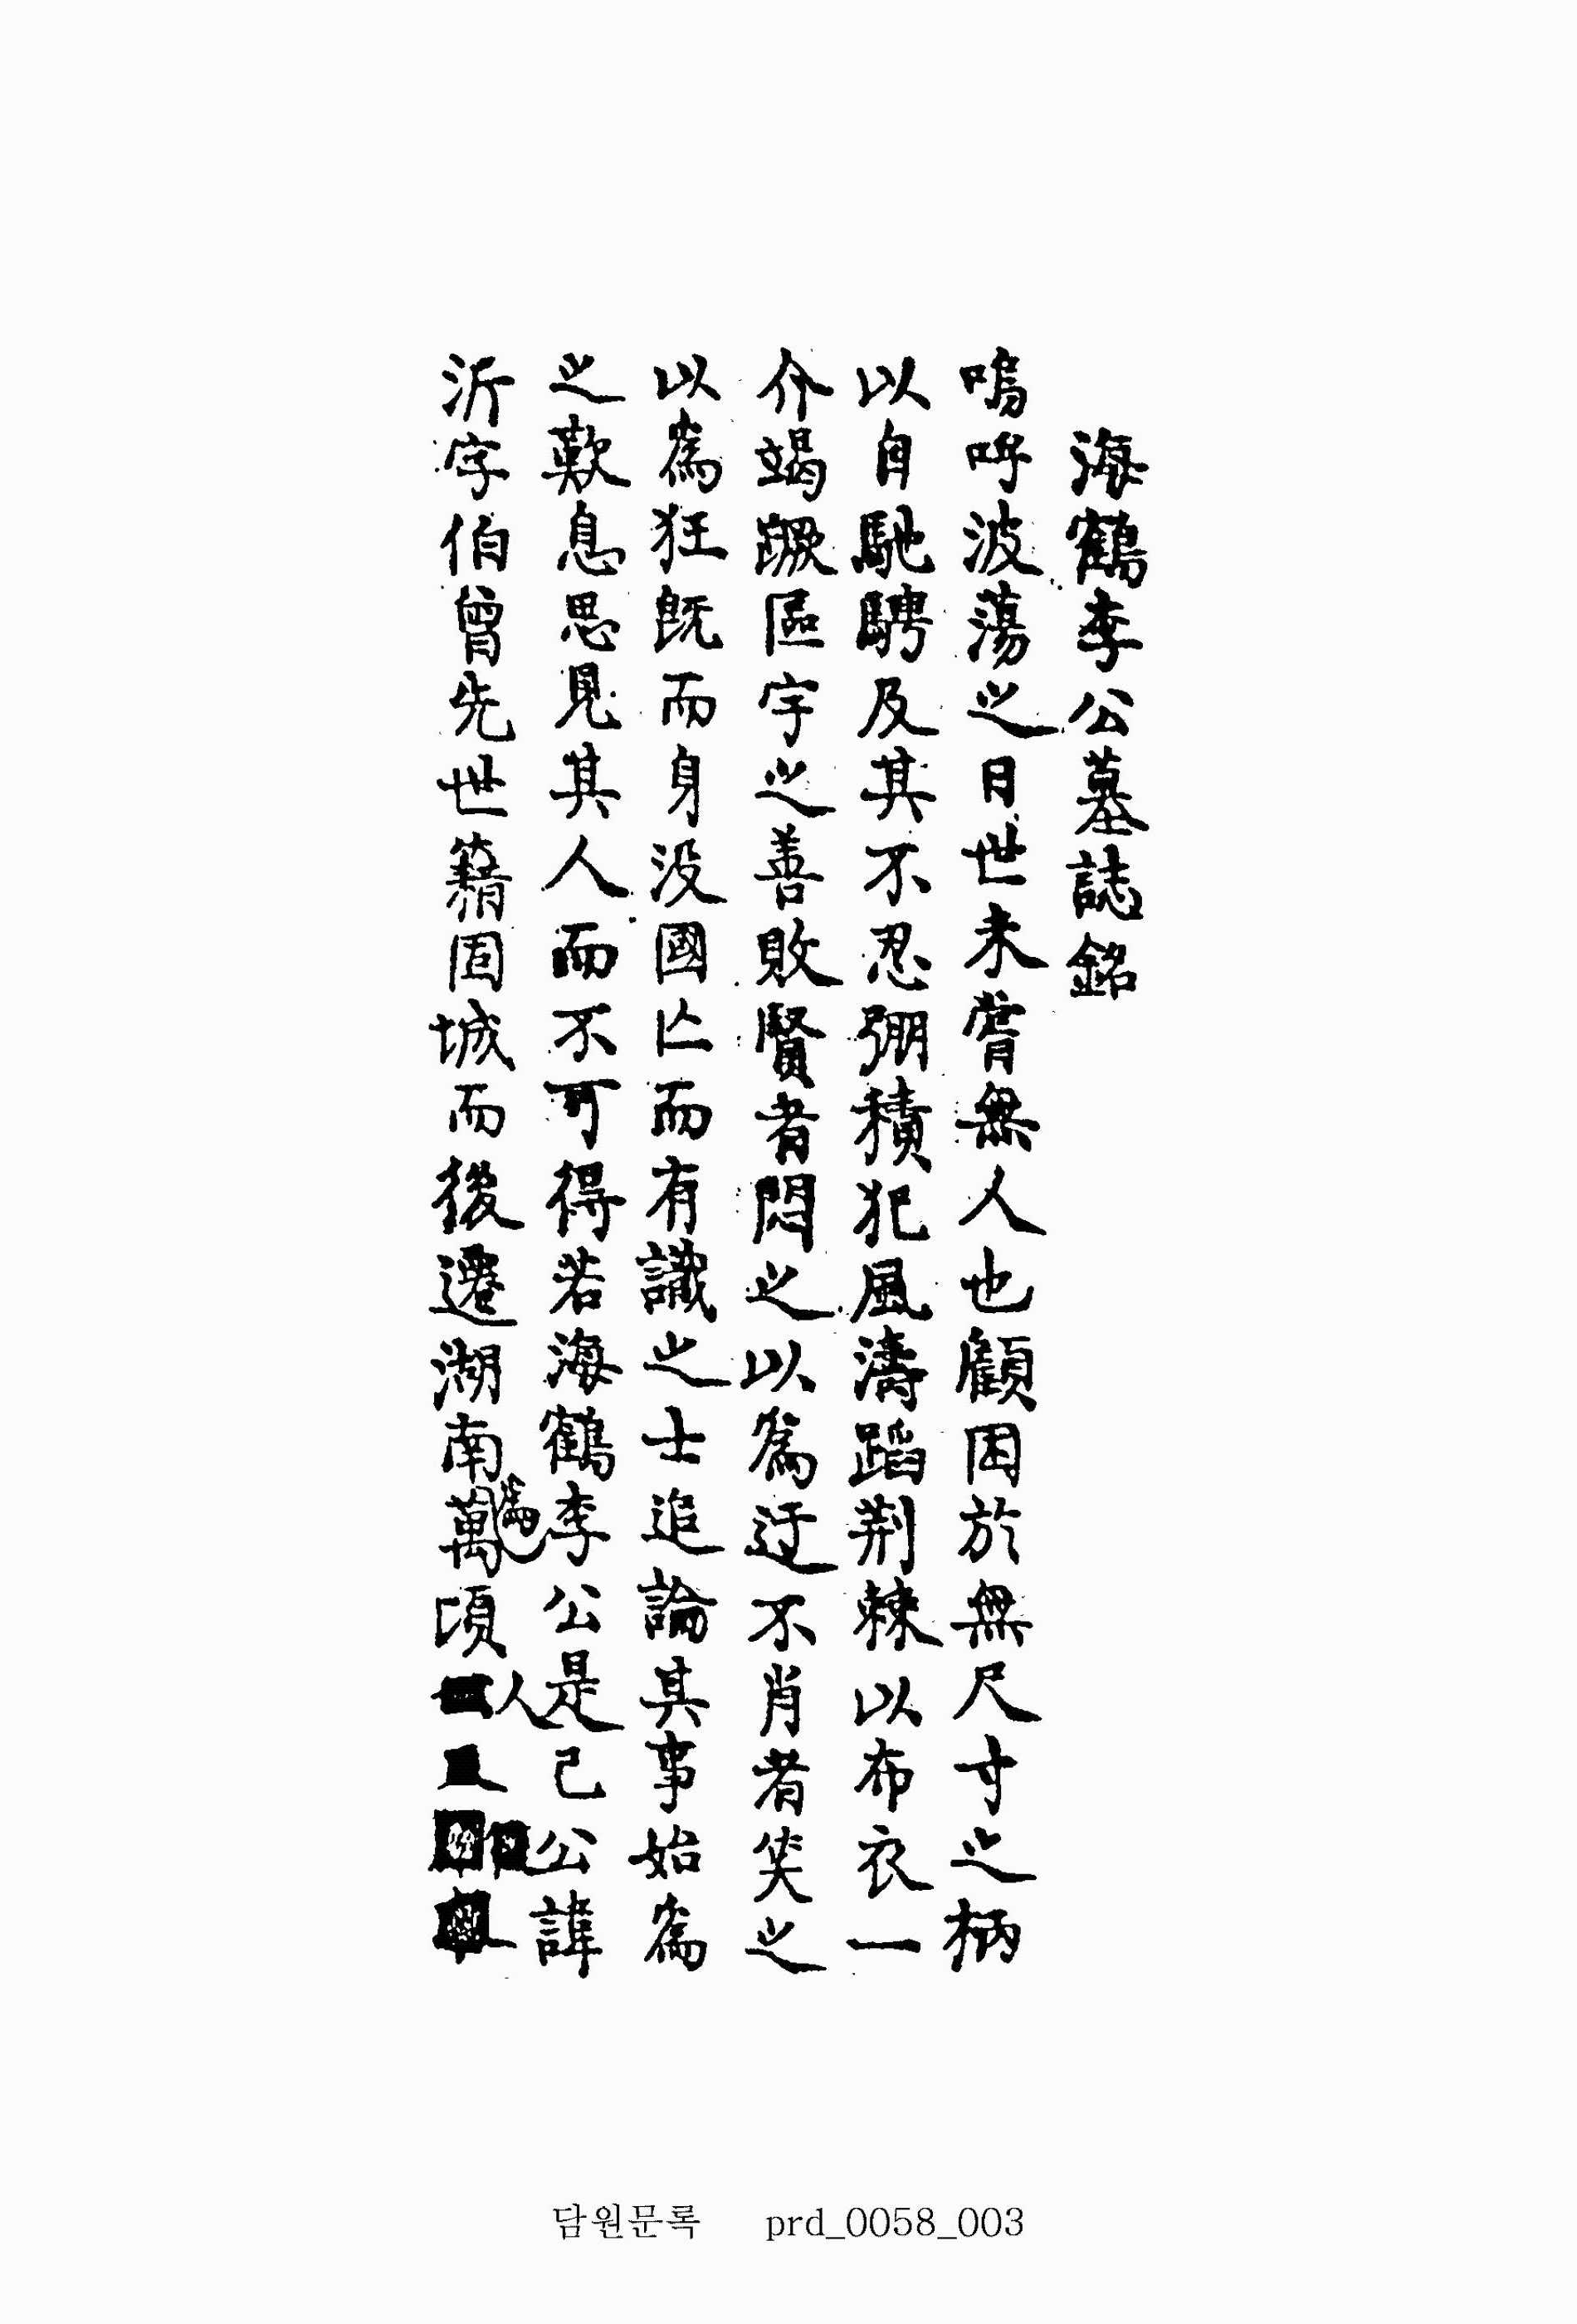 海鶴李公墓誌銘
嗚呼波蕩之日世未嘗無人也顧困於無尺寸之柄
以自馳騁及其不忍弸積犯風濤蹈荊棘以布衣一
介竭蹶區宇之善敗賢者悶之以爲迂不肖者笑之
以爲狂旣而身沒國亡而有識之士追論其事始爲
之歎息思見其人而不可得若海鶴李公是己公諱
沂字伯曾先世籍固城而後遷湖南爲萬頃人
담원문록 prd_0058_003